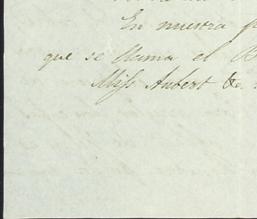 En nuestra
que se llama el
Miss Aubert &c.